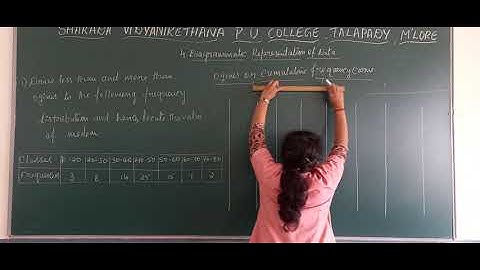 SHARADA VIDYANIKETHANA P U COLLEGE, TALAPADY, M'LORE
4. Diagrammatic Representation of Data
Ogives or Cumulative frequency Curve
1) Draw less than and more than
ogives to the following frequency
distribution and hence locate the value
of median
Classes 10-20 20-30 30-40 40-50 50-60 60-70 70-80
Frequencies 3 8 16 25 15 2